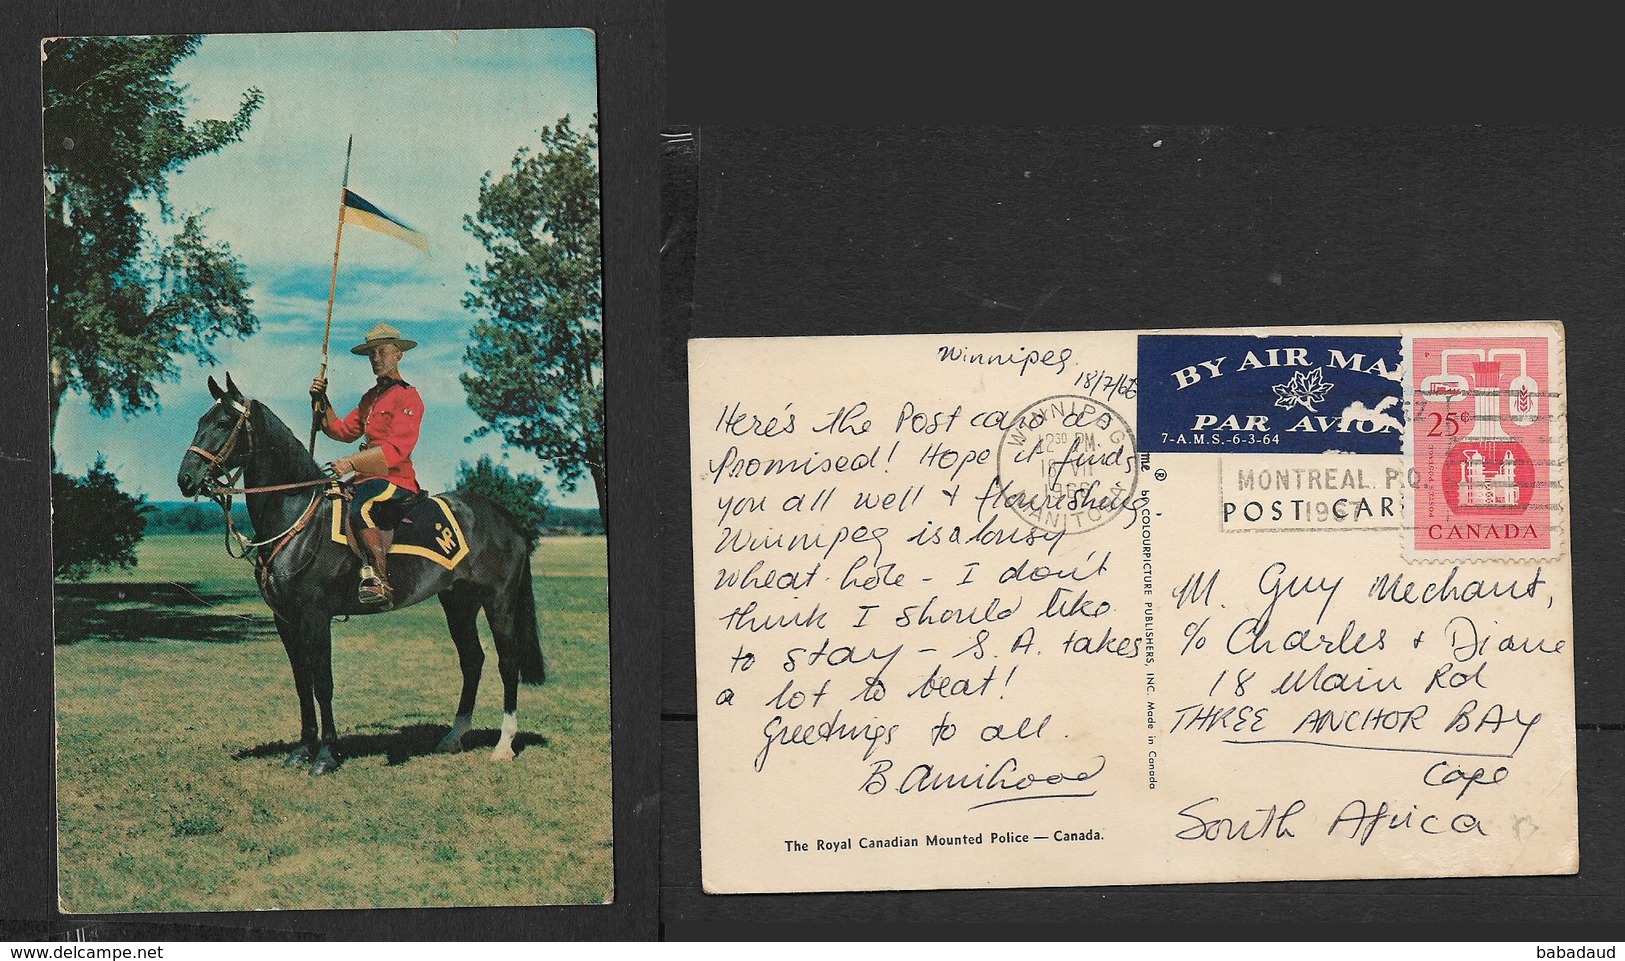 MP
Winnipeg.
18/7/66
Here's the Post card as
Promised! Hope it finds
you all well & flourishing
Winnipeg is a lousy
wheat-hole - I don't
think I should like
to stay - S. A. takes
a lot to beat!
Greetings to all.
The Royal Canadian Mounted Police — Canada.
WINNIPEG
12 30 PM.
MANITOBA
by COLOURPICTURE PUBLISHERS, INC. Made in Canada
BY AIR MA
PAR AVION
7-A.M.S.-6-3-64
MONTREAL P.Q.
1967
POST CAR
25¢
POSTES POSTAGE
CANADA
M. Guy Mechant,
c/o Charles & Diane
18 Main Rd
THREE ANCHOR BAY
Cape
South Africa
babadaud